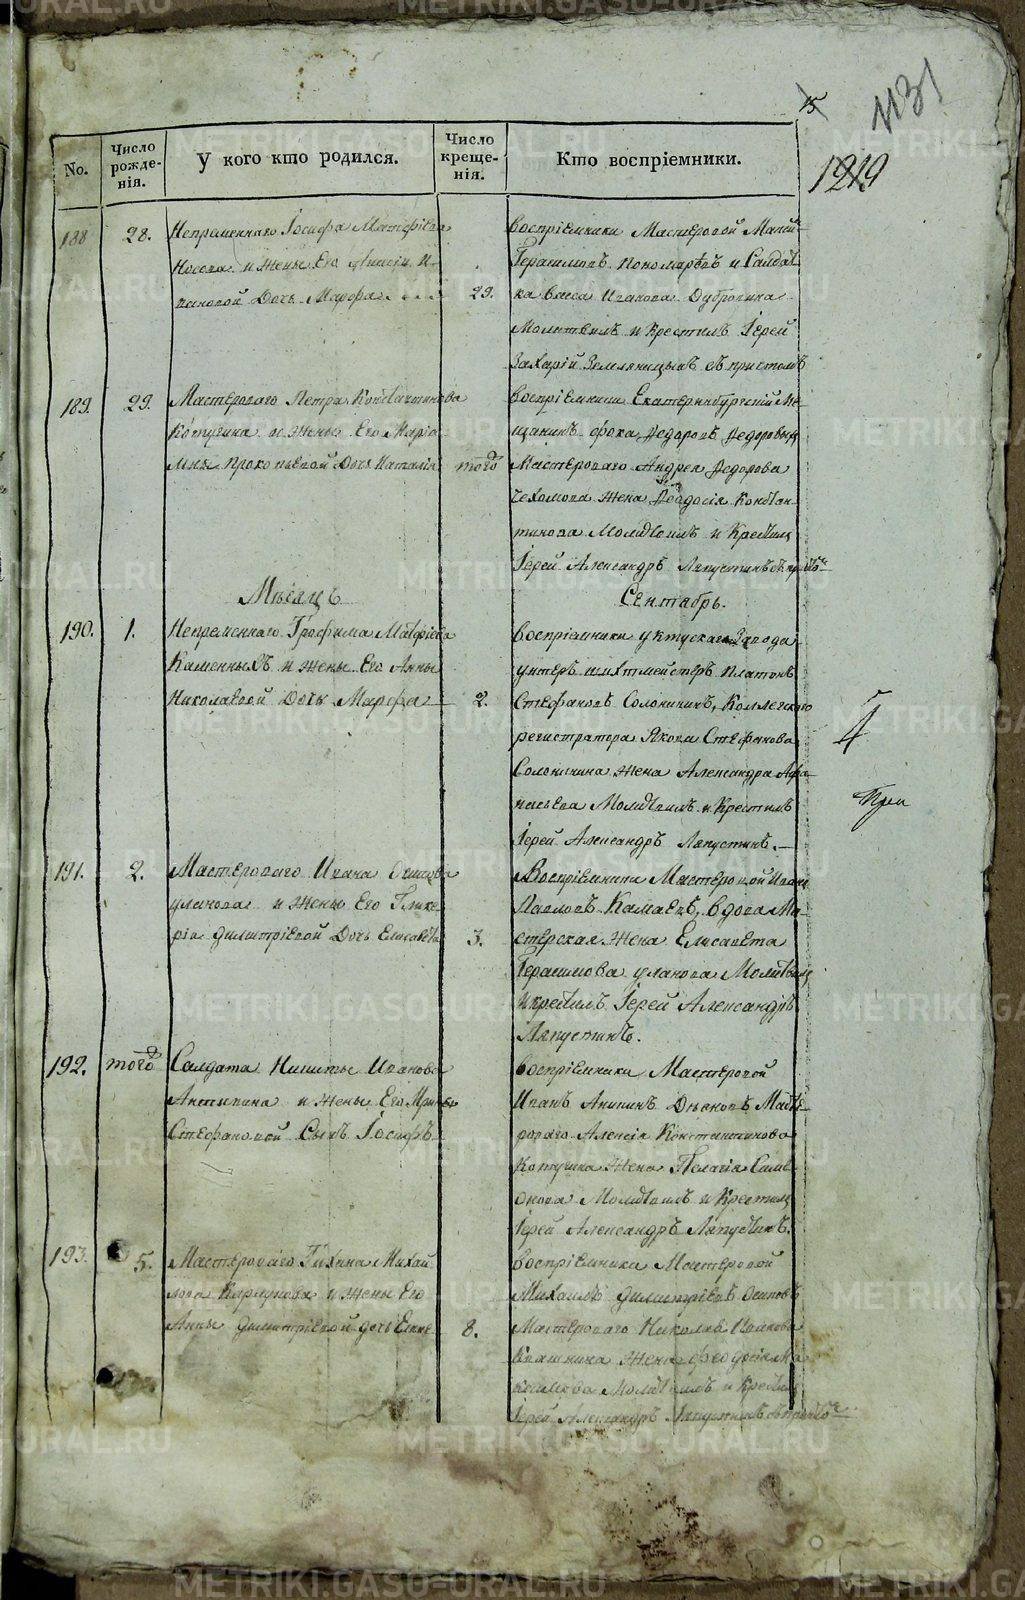 15
1131
1219
No.
Число рожде-нія.
У кого кто родился.
Число креще-нія.
Кто воспріемники.
188
28.
Непременнаго Іосифа Матфіева
Носова и жены Его
Дочь Марфа
29.
воспріемники Мастеровой
Герасимовъ Пономаревъ и Салдат
ка васса Иванова Дубровина
Молитвилъ и крестилъ Іерей
Захарій Земляницынъ съ причтомъ
189.
29.
Мастероваго Петра Константинова
Котугина и жены Его Маріа
мны прокопьевой Дочь Наталія
того
воспріемники Екатеринбургскій Ме
щанинъ фока Федоровъ Федоровыхъ
Мастероваго Андрея Федорова
Чехомова жена Феодосія Констан
тинова Молитвилъ и Крестилъ
Іерей Александръ Ляпустинъ
Мѣсяцъ
Сентябрь.
190.
1.
Непременнаго Трофима Матфіева
Каменныхъ и жены Его Анны
Николаевой Дочь Марфа
2.
воспріемники уктускаго Завода
унтеръ шихтмейстеръ Платонъ
Стефановъ Солонининъ, Коллежскаго
регистратора Якова Стефанова
Солонинина жена Александра Афа
насьева Молитвилъ и Крестилъ
Іерей Александръ Ляпустинъ.
4
191.
2.
Мастероваго Ивана Осипова
уланова и жены Его Глике
ріи димитріевой Дочь Елисавета
3.
Воспріемники Мастеровой Иванъ
Павловъ Камаевъ, вдова Ма
стерская жена Елисавета
Герасимова уланова Молитвилъ
и крестилъ Іерей Александръ
Ляпустинъ.
192.
того
Салдата Никиты Иванова
Антипина и жены Его Ирины
Стефановой Сынъ Іосифъ
воспріемники Мастеровой
Иванъ Мастѣ
роваго Алексія Константинова
Котугина жена Пелагія Симе
онова Молитвилъ и Крестилъ
Іерей Александръ Ляпустинъ.
193.
5.
Мастероваго Тихона Михай
лова и жены Его
Анны димитріевой дочь
8.
воспріемники Мастеровой
Михаилъ димитріевъ Осиповъ
Мастероваго Николая
жена феодосія Ма
ксимова Молитвилъ и Крестилъ
Іерей Александръ Ляпустинъ
METRIKI.GASO-URAL.RU